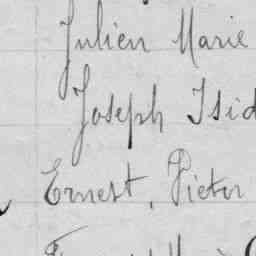 Julien Marie
Joseph Isid
Ernest, Pieter